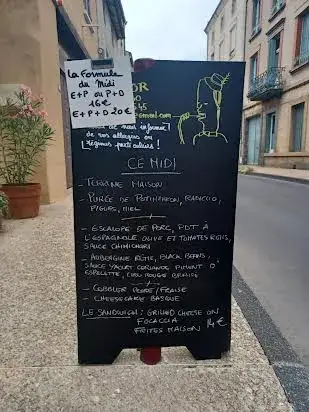 La Formule
du Midi
E+P ou P+D
16€
E+P+D 20€
OR
45
mail.com
de nous informer
de vos allergies ou
régimes particuliers!
CE MIDI
- TERRINE MAISON
- PURÉE DE POTIMARRON, RADICCIO,
FIGUES, MIEL
- ESCALOPE DE PORC, PDT À
L'ESPAGNOLE OLIVE ET TOMATES RÔTIS,
SAUCE CHIMICHURRI
- AUBERGINE RÔTIE, BLACK BEANS,
SAUCE YAOURT CORIANDRE PIMENT D'
ESPELETTE, CHOU ROUGE
- COBBLER POIRE/FRAISE
- CHEESECAKE BASQUE
LE SANDWICH: GRILLED CHEESE ON
FOCACCIA
FRITES MAISON 14€